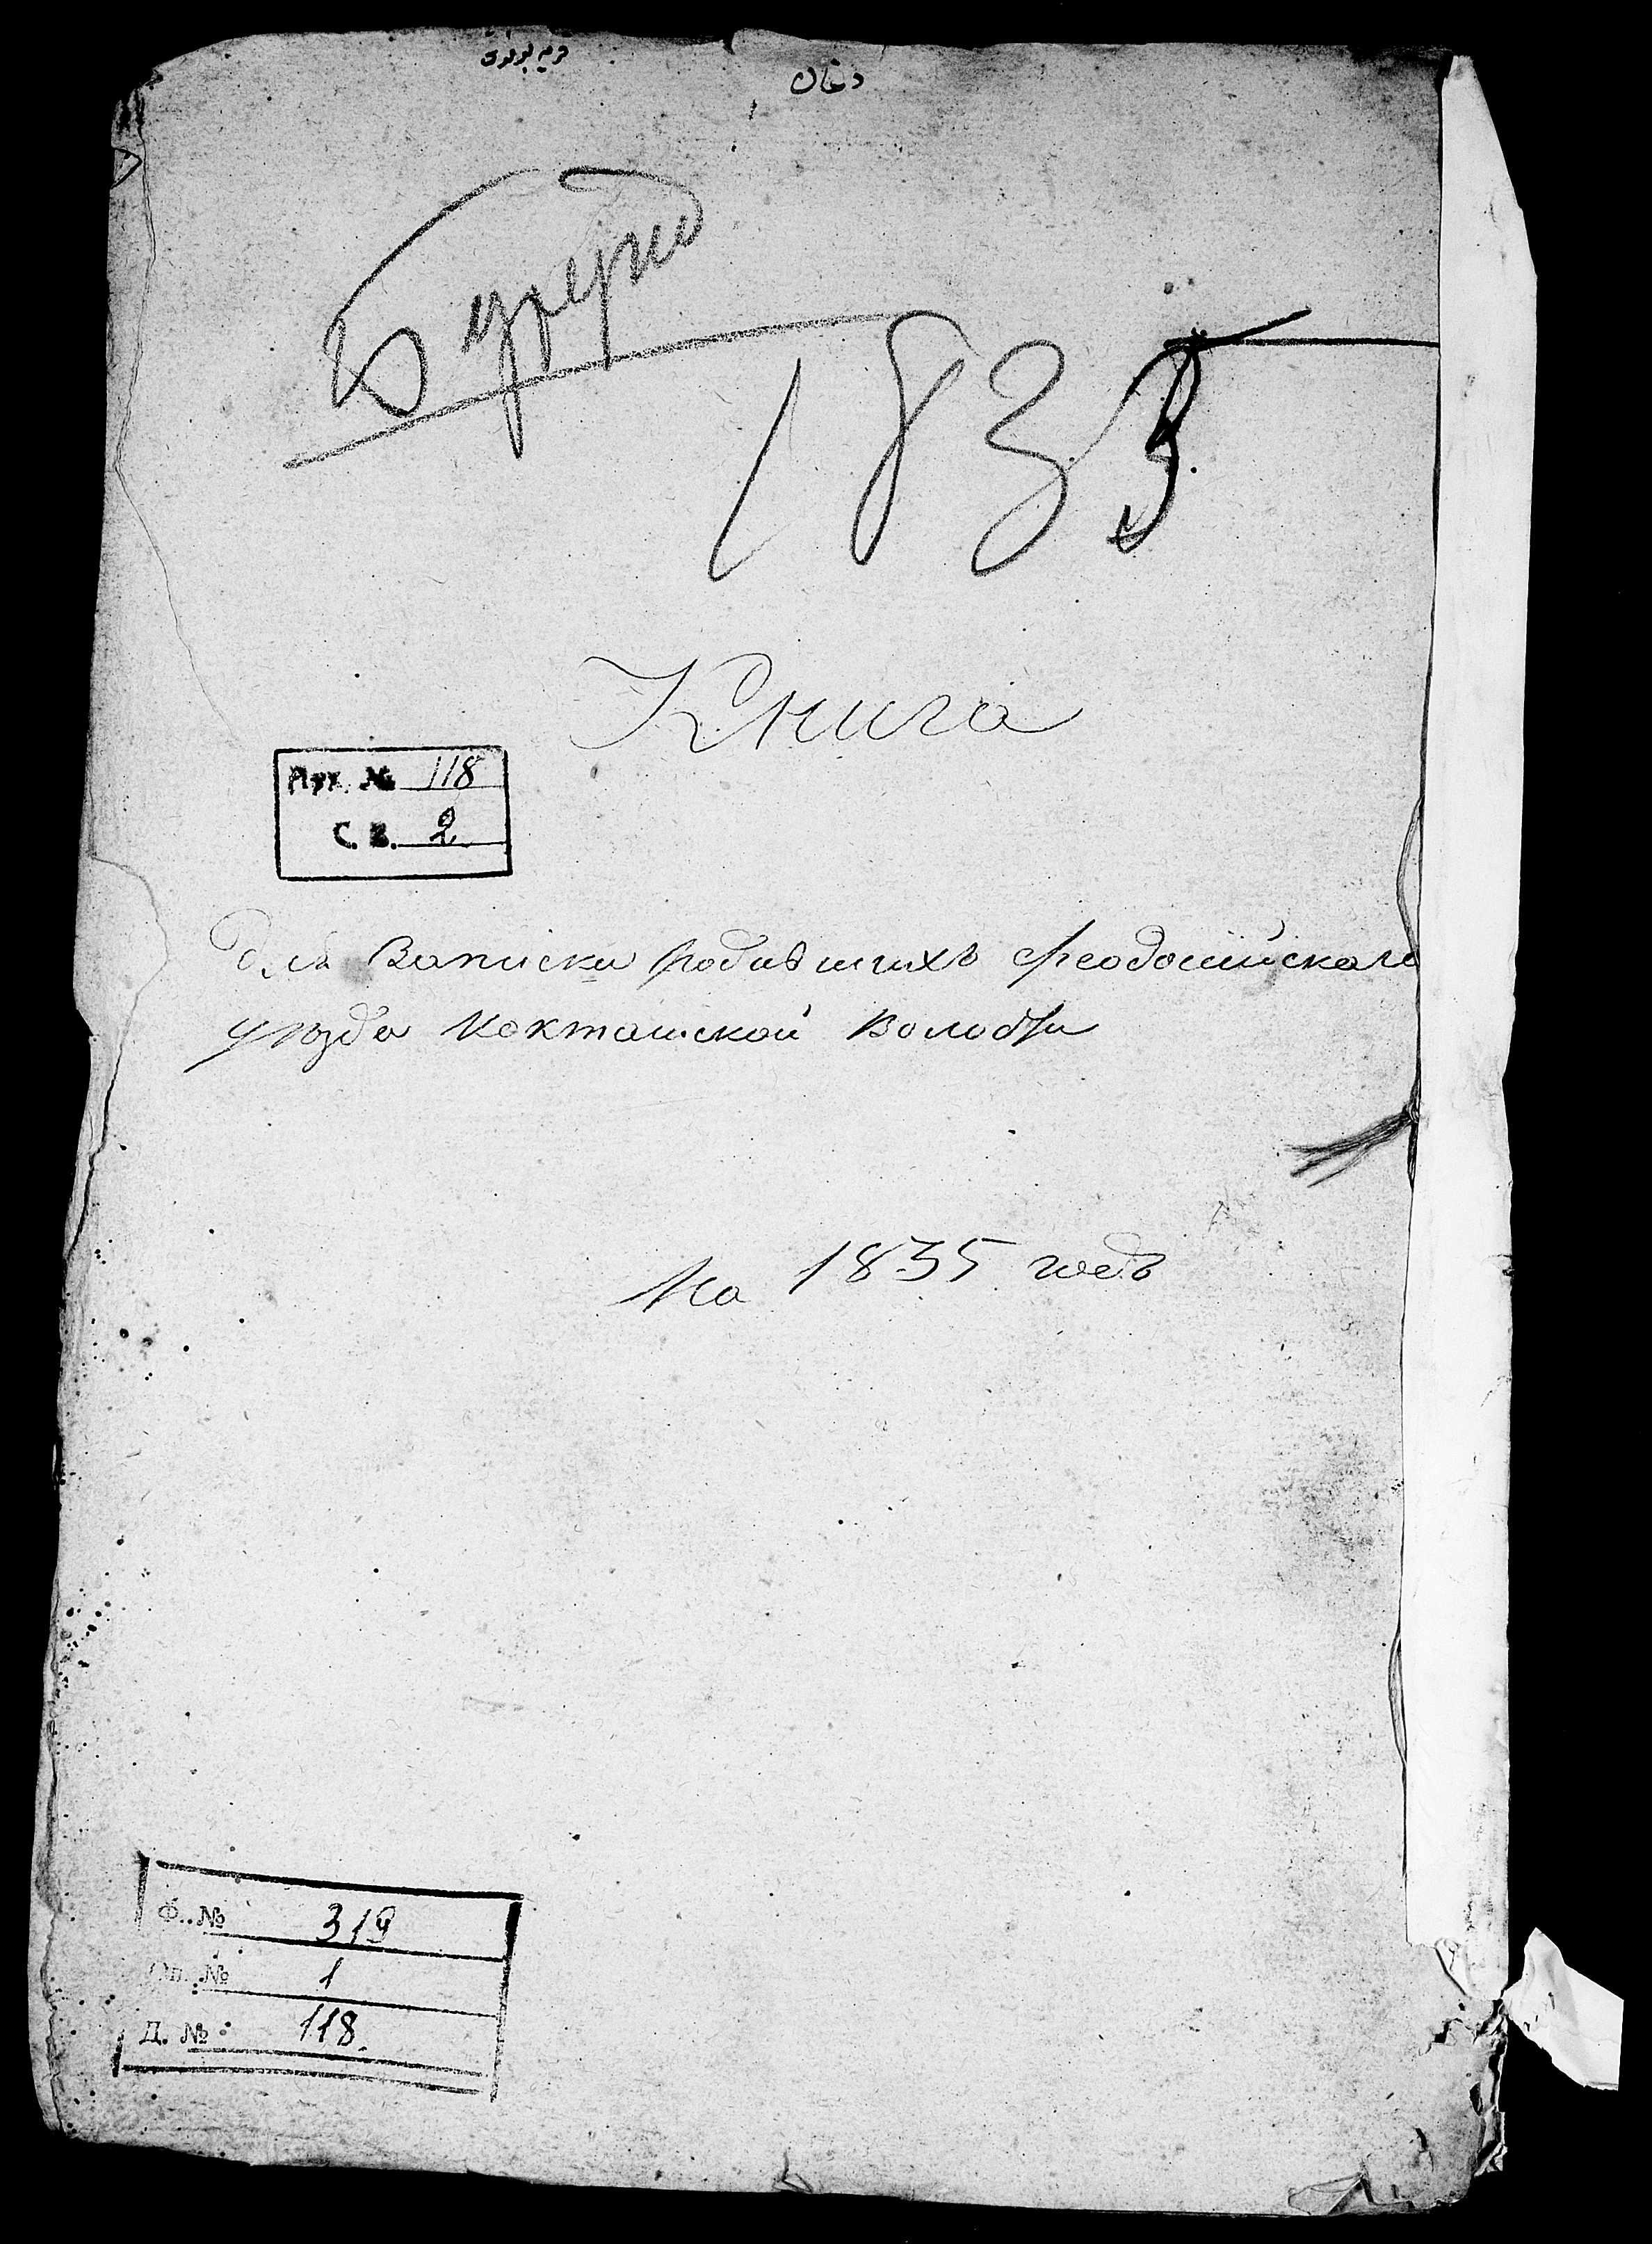 دغان
1835
Книга
Арх. № 118
С. В. 2
для Записки родившихъ Феодосійскаго
уѣзда Кокташской Волости
На 1835 годъ
Ф. № 319
Оп. № 1
Д. № 118.